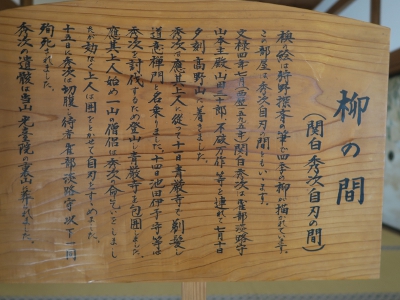 柳の間
(関白秀次自刃の間)
襖の絵は狩野探斎の筆で四季の柳が描かれています。
この部屋は秀次自刃の間ともいいます。
文禄四年七月(西暦一五九五年)関白秀次は雀部淡路守
山本主殿 山田三十郎 不破万作等を連れて七月十日
夕刻高野山に着きました。
秀次は應其上人に従って十日青巌寺で剃髪し
道意禅門と名乗りました。十四日池田伊予守等は
秀次を討伐するため登山し青巌寺を包囲しました。
應其上人始め一山の僧侶は秀次の命乞いをしまし
たが効なく上人は囲をとかせて自刃をすすめました。
十五日に秀次は切腹 侍童雀部淡路守以下一同
殉死されました。
秀次の遺骸は当山光臺院の裏山に葬られました。